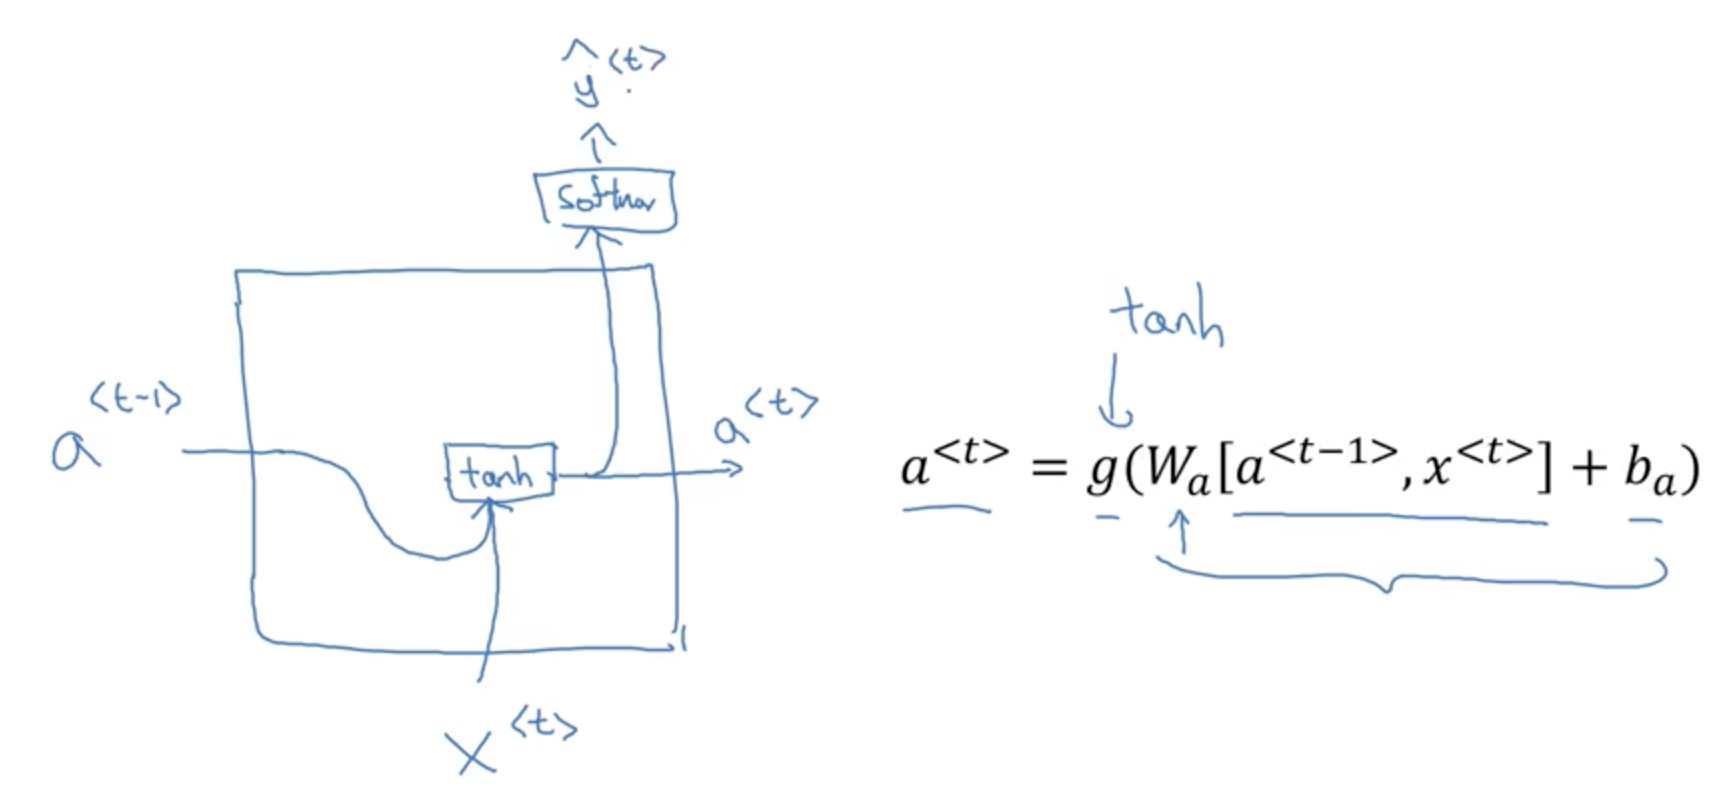 ŷ<t>
softmax
a<t-1>
tanh
a<t>
x<t>
tanh
a<t> = g(Wa[a<t−1>, x<t>] + ba)